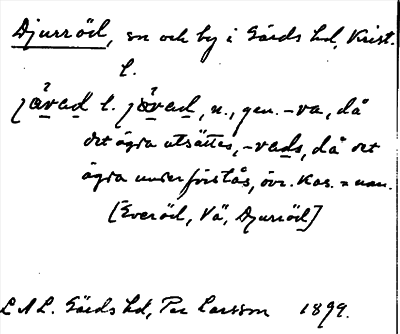 Djurröd, sn och by i Gärds hd, Krist.
l.
jåvad l. jovad, n., gen. -va, då
det ägda utsättes, -vads, då det
ägda underförstås, övr. kas. = nom.
[Everöd, Vä, Djurröd]
L A L. Gärds hd, Per Larsson 1899.